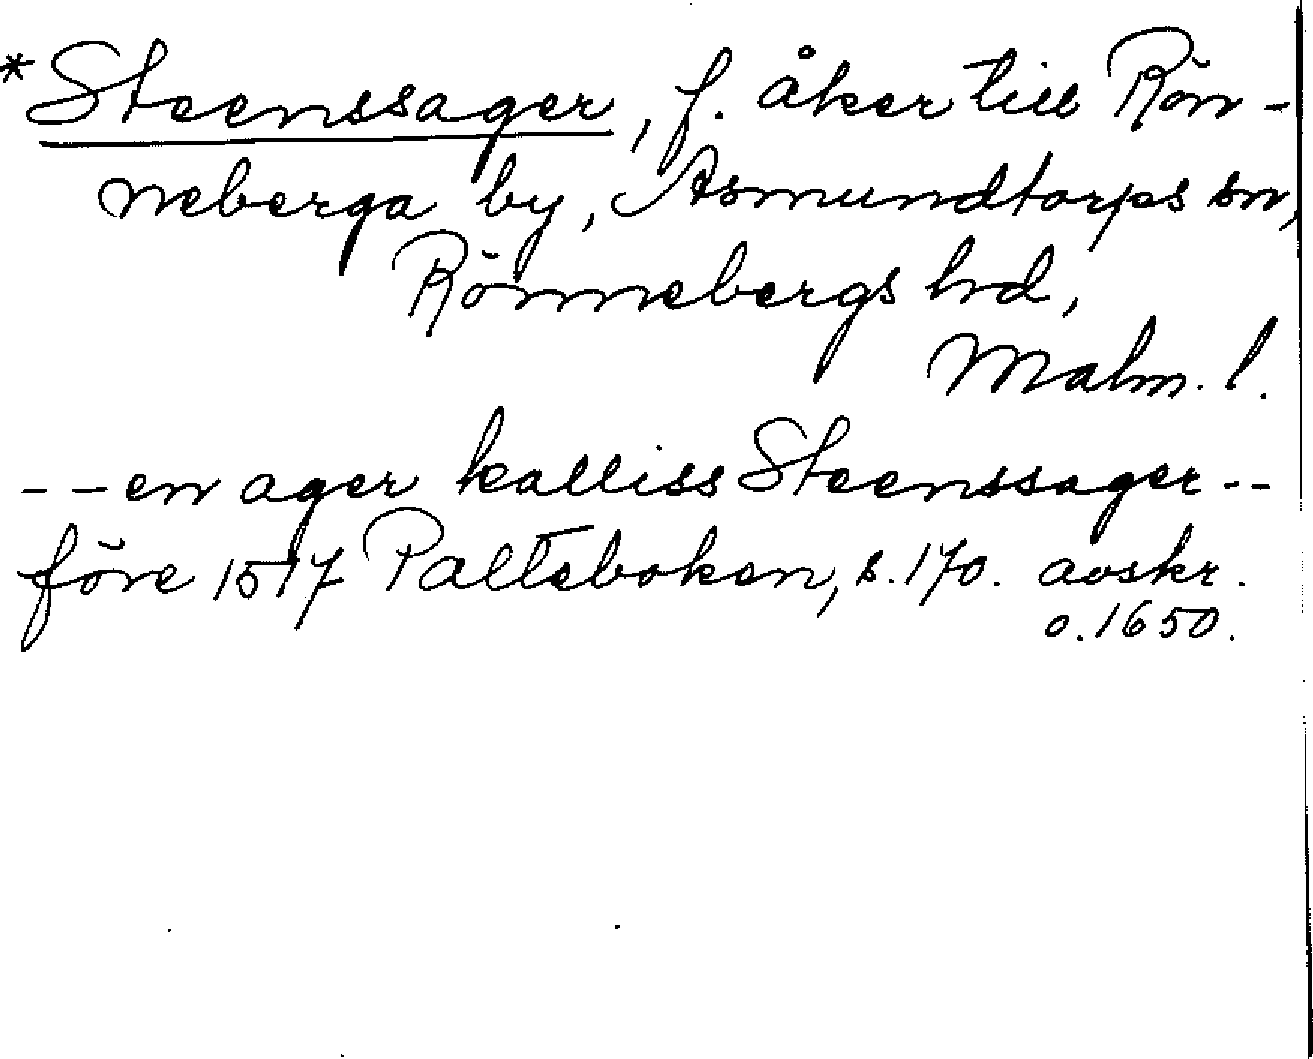 *Steenssager, f. åker till Rön-
neberga by, Asmundtorps sn,
Rönnebergs hd,
Malm. l.
--en ager kalliss Steenssager--
före 1517 Palteboken, s. 170. avskr.
o. 1650.